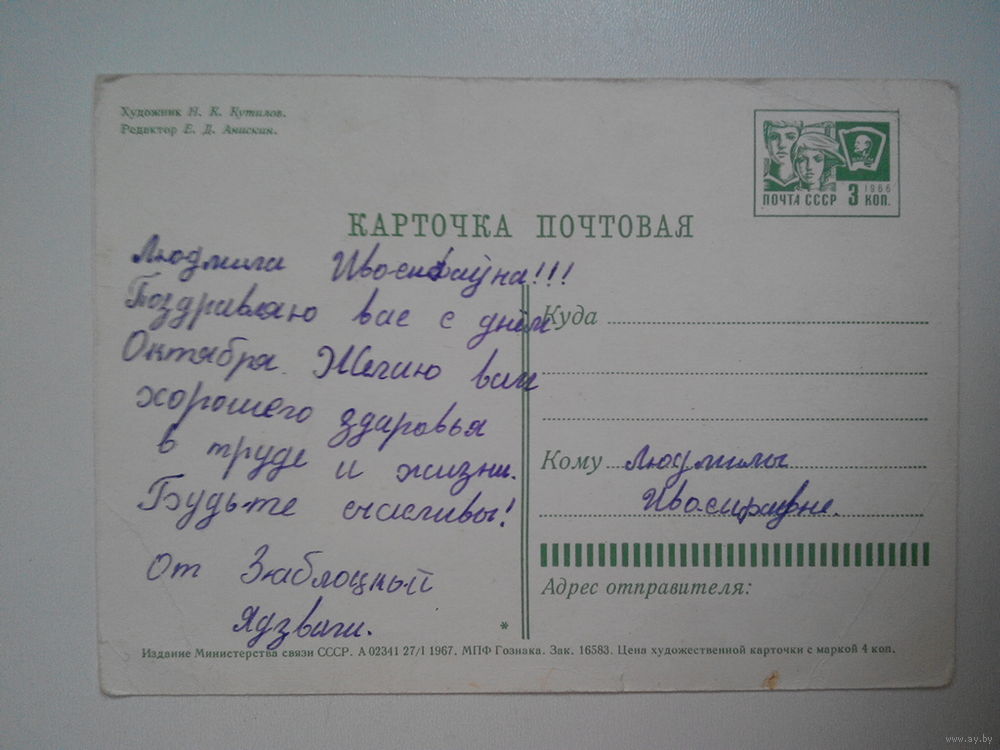 Художник Н. К. Кутилов.
Редактор Е. Д. Анискин.
1966
ПОЧТА СССР 3 КОП.
КАРТОЧКА ПОЧТОВАЯ
Людмила
Поздравляю вас с днём
Октября. Желаю вам
хорошего здоровья
в труде и жизни.
Будьте счасливы!
От Заблоцный
Ядзвиги.
Куда
Кому Людмилы
Адрес отправителя:
*
Издание Министерства связи СССР. А 02341 27/I 1967. МПФ Гознака. Зак. 16583. Цена художественной карточки с маркой 4 коп.
www.ay.by